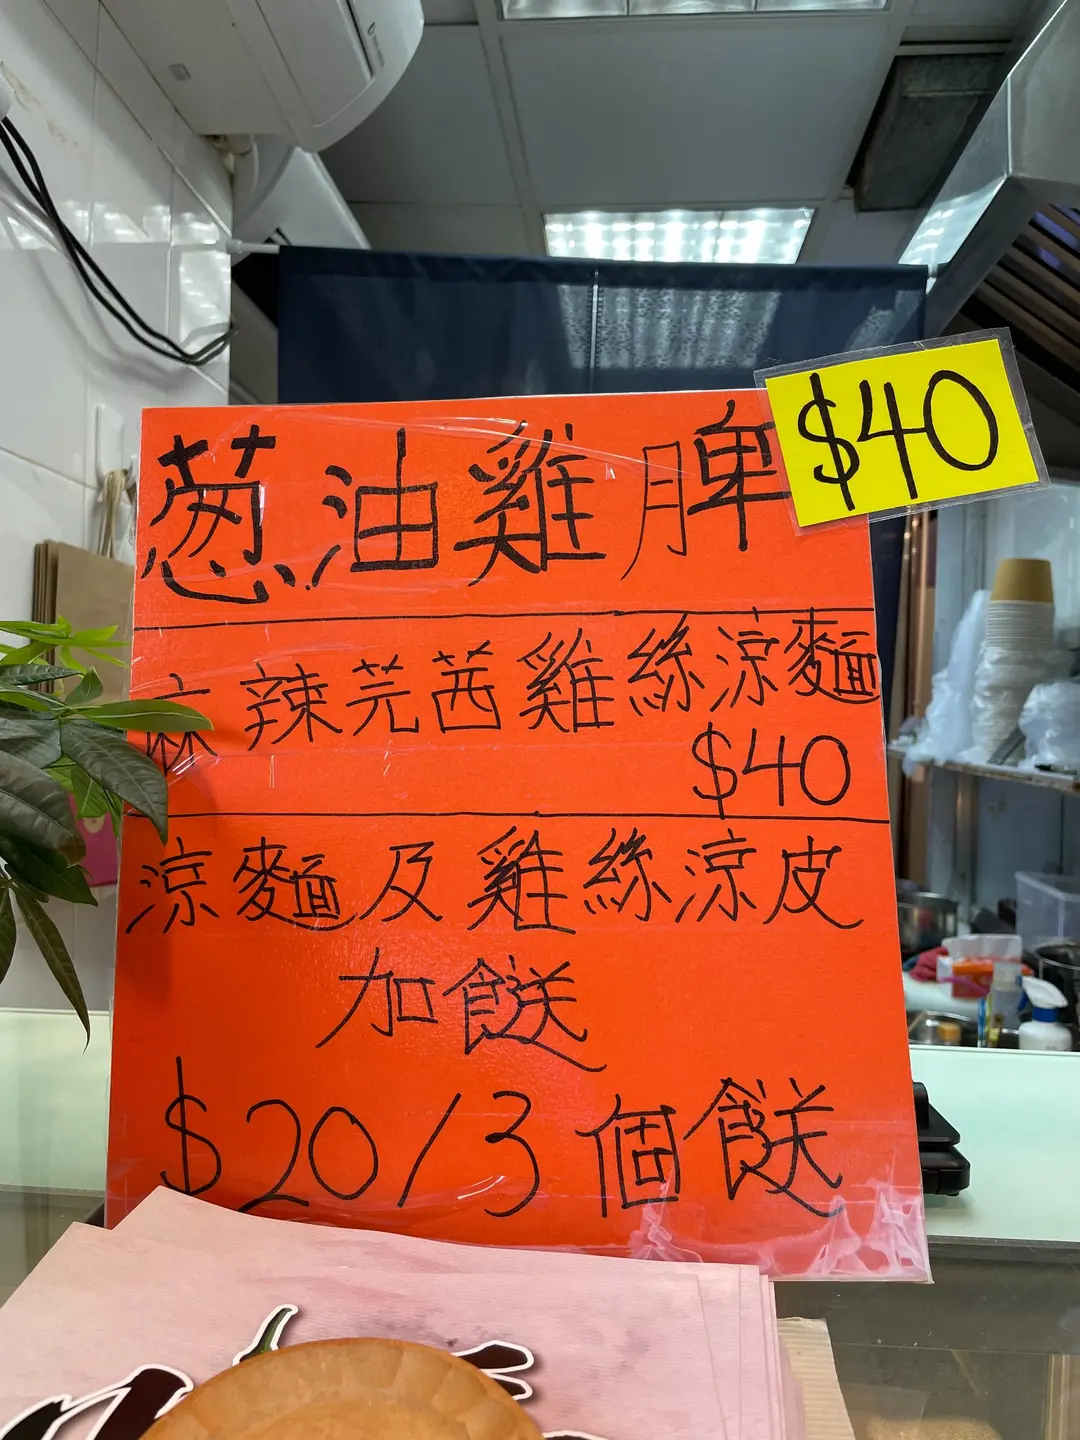 葱油雞脾 $40
麻辣芫茜雞絲涼麵
$40
涼麵及雞絲涼皮
加餸
$20/3個餸